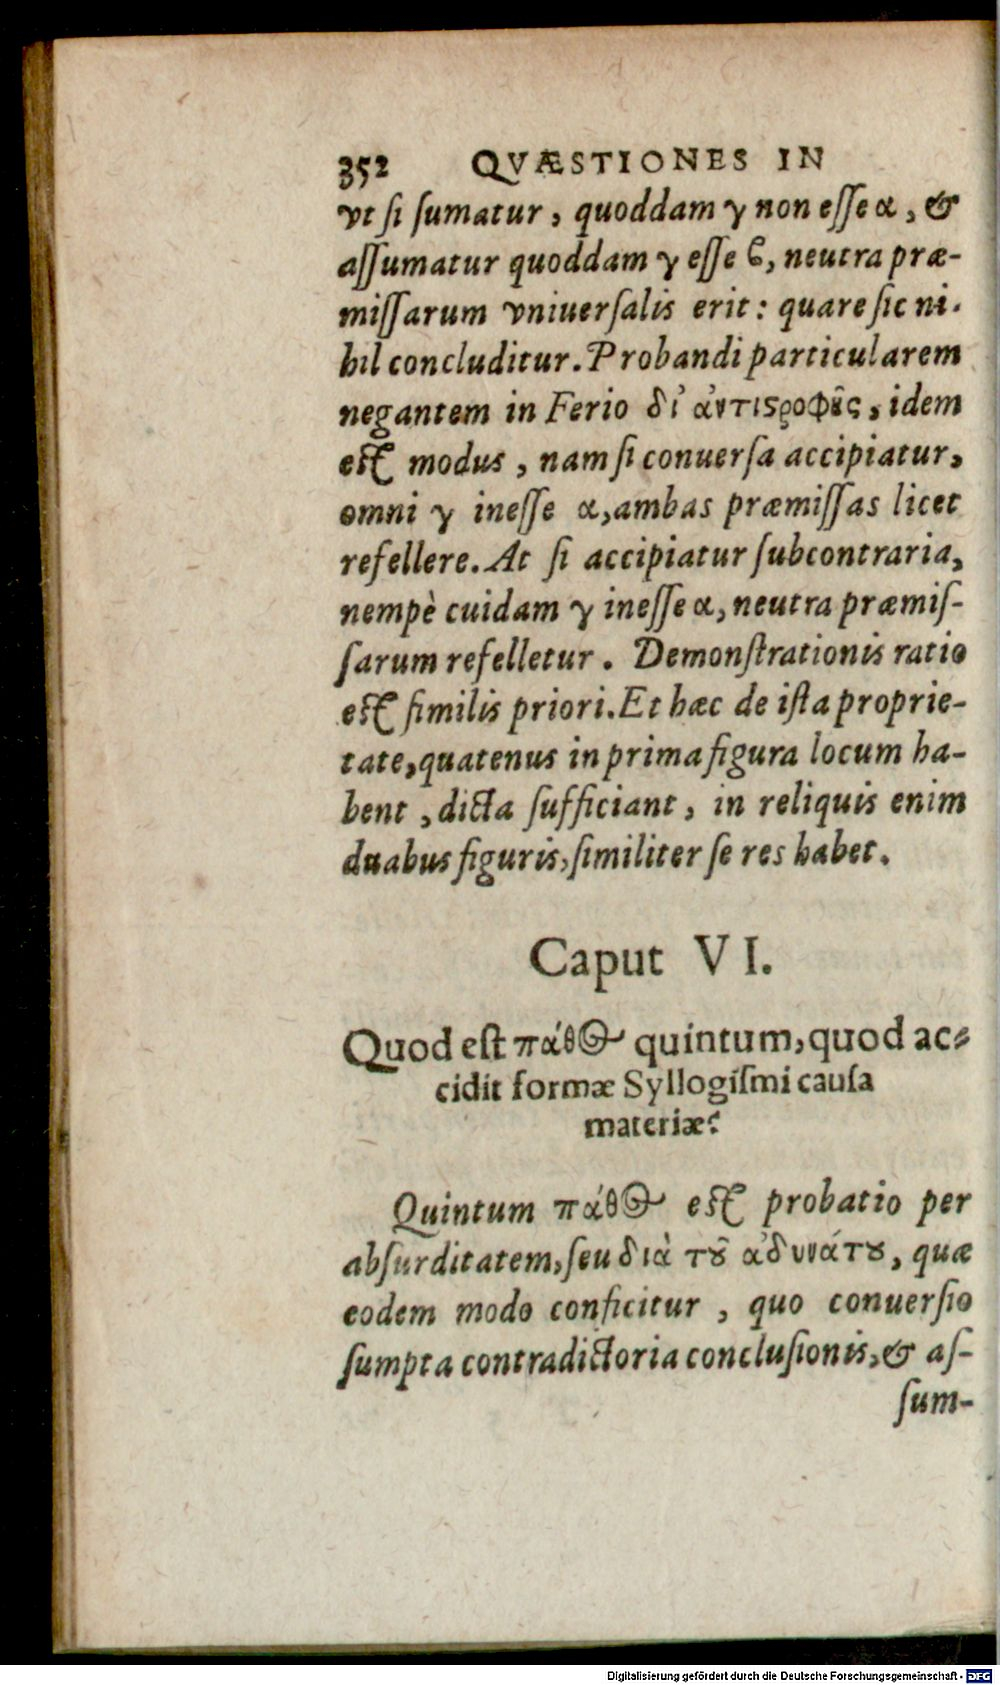 352 QVÆSTIONES IN
vt ſi ſumatur, quoddam γ non eſſe α, &
aſſumatur quoddam γ eſſe ϐ, neutra præ-
miſſarum vniuerſalis erit: quare ſic ni-
hil concluditur. Probandi particularem
negantem in Ferio δι' ἀντιϛροφῆς, idem
eſt modus, nam ſi conuerſa accipiatur,
omni γ ineſſe α, ambas præmiſſas licet
refellere. At ſi accipiatur ſubcontraria,
nempè cuidam γ ineſſe α, neutra præmiſ-
ſarum refelletur. Demonſtrationis ratio
eſt ſimilis priori. Et hæc de iſta proprie-
tate, quatenus in prima figura locum ha-
bent, dicta ſufficiant, in reliquis enim
duabus figuris, ſimiliter ſe res habet.
Caput VI.
Quod eſt πάθος quintum, quod ac-
cidit formæ Syllogiſmi cauſa
materiæ?
Quintum πάθος eſt probatio per
abſurditatem, ſeu διὰ τȣ͂ ἀδυνάτȣ, quæ
eodem modo conficitur, quo conuerſio
ſumpta contradictoria concluſionis, & aſ-
ſum-
Digitalisierung gefördert durch die Deutsche Forschungsgemeinschaft - DFG